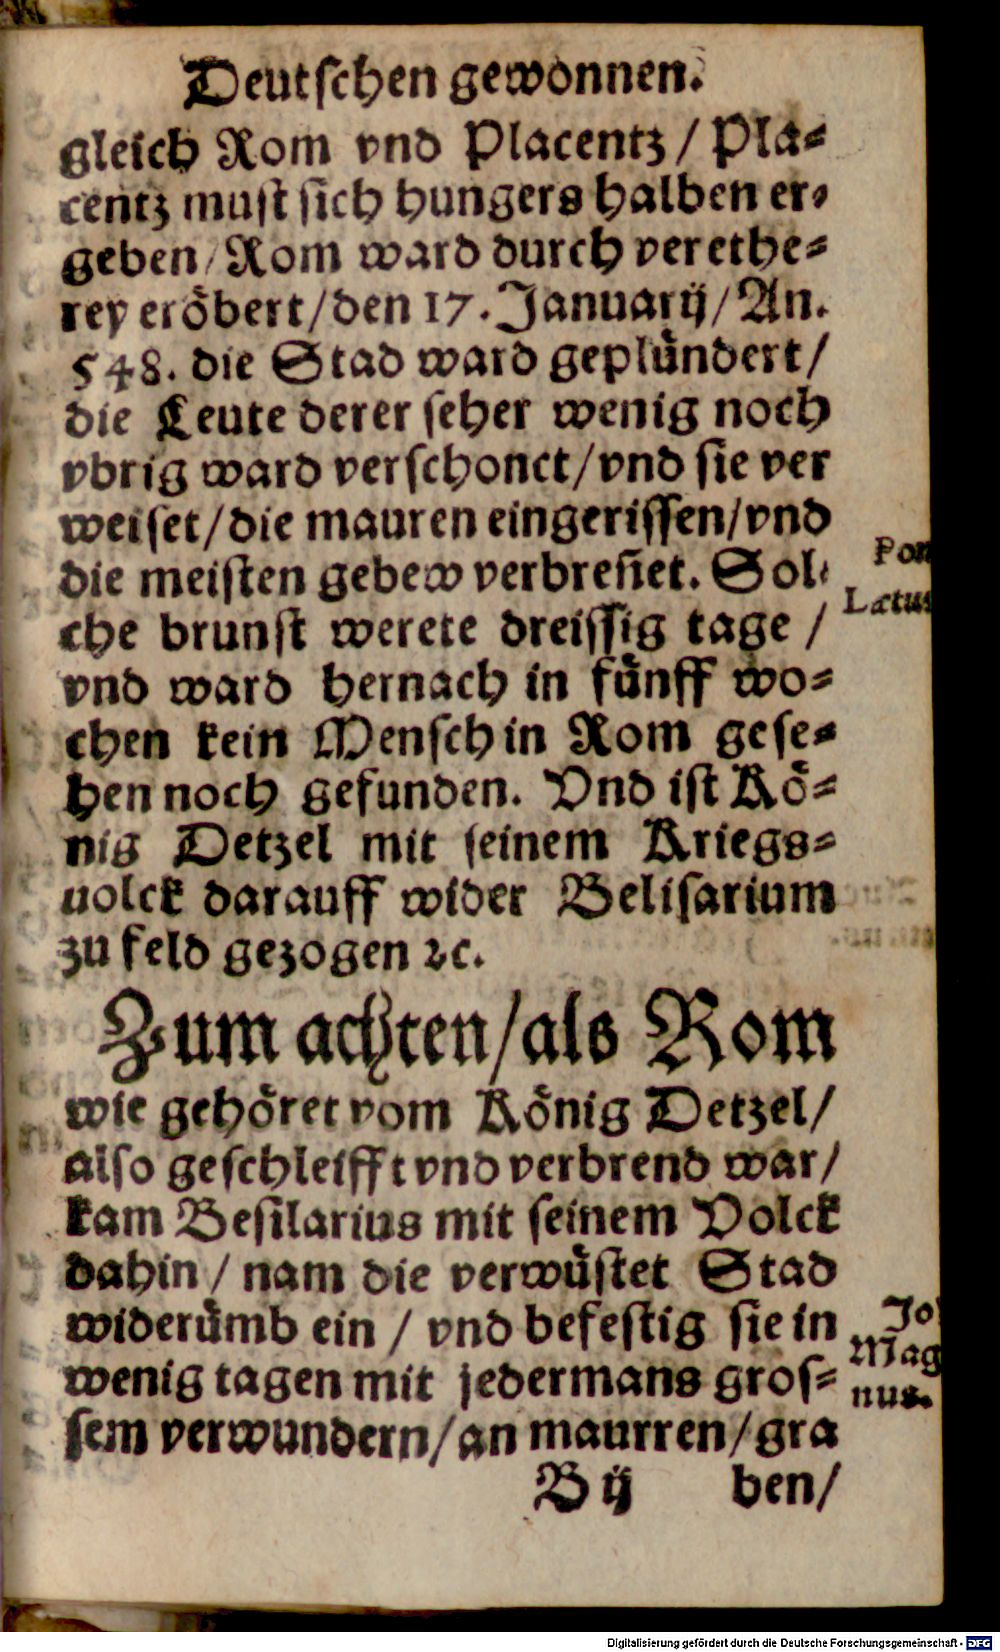 Deutſchen gewonnen.
gleich Rom vnd Placentz / Pla⸗
centz muſt ſich hungers halben er⸗
geben / Rom ward durch verethe⸗
rey eröbert / den 17. Januarij / An.
548. die Stad ward geplündert /
die Leute derer ſeher wenig noch
vbrig ward verſchonet / vnd ſie ver
weiſet / die mauren eingeriſſen / vnd
die meiſten gebew verbreñet. Sol⸗
che brunſt werete dreiſſig tage /
vnd ward hernach in fünff wo⸗
chen kein Menſch in Rom geſe⸗
hen noch gefunden. Vnd iſt Kö⸗
nig Detzel mit ſeinem Kriegs⸗
uolck darauff wider Beliſarium
zu feld gezogen ꝛc.
Pon
Lætus
Zum achten / als Rom
wie gehöret vom König Detzel /
alſo geſchleifft vnd verbrend war /
kam Beſilarius mit ſeinem Volck
dahin / nam die verwüſtet Stad
widerümb ein / vnd befeſtig ſie in
wenig tagen mit jedermans groſ⸗
ſem verwundern / an maurren / gra
Jo
Mag
nus.
B ij ben /
Digitalisierung gefördert durch die Deutsche Forschungsgemeinschaft - DFG